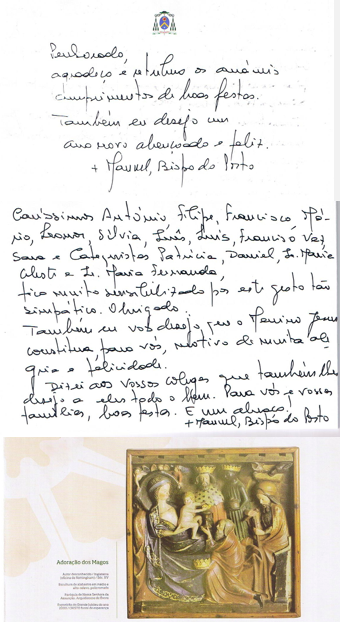 Penhorado,
agradeço e retribuo os amáveis
cumprimentos de boas festas.
Também eu desejo um
ano novo abençoado e feliz.
+ Manuel, Bispo do Porto
Caríssimos António Filipe, Francisco, Má-
rio, Leonor, Sílvia, Inês, Luís, Francisco Vaz,
Sara e Catequistas Patrícia, Daniel, Ir. Maria
e Ir. Maria Fernanda,
fico muito sensibilizado por este gesto tão
simpático. Obrigado.
Também eu vos desejo que o Menino Jesus
constitua para vós, motivo de muita ale
gria e felicidade.
Direi aos vossos colegas que também lhes
desejo a eles todo o bem. Para vós e vossas
famílias, boas festas. E um abraço!
+ Manuel, Bispo do Porto
Adoração dos Magos